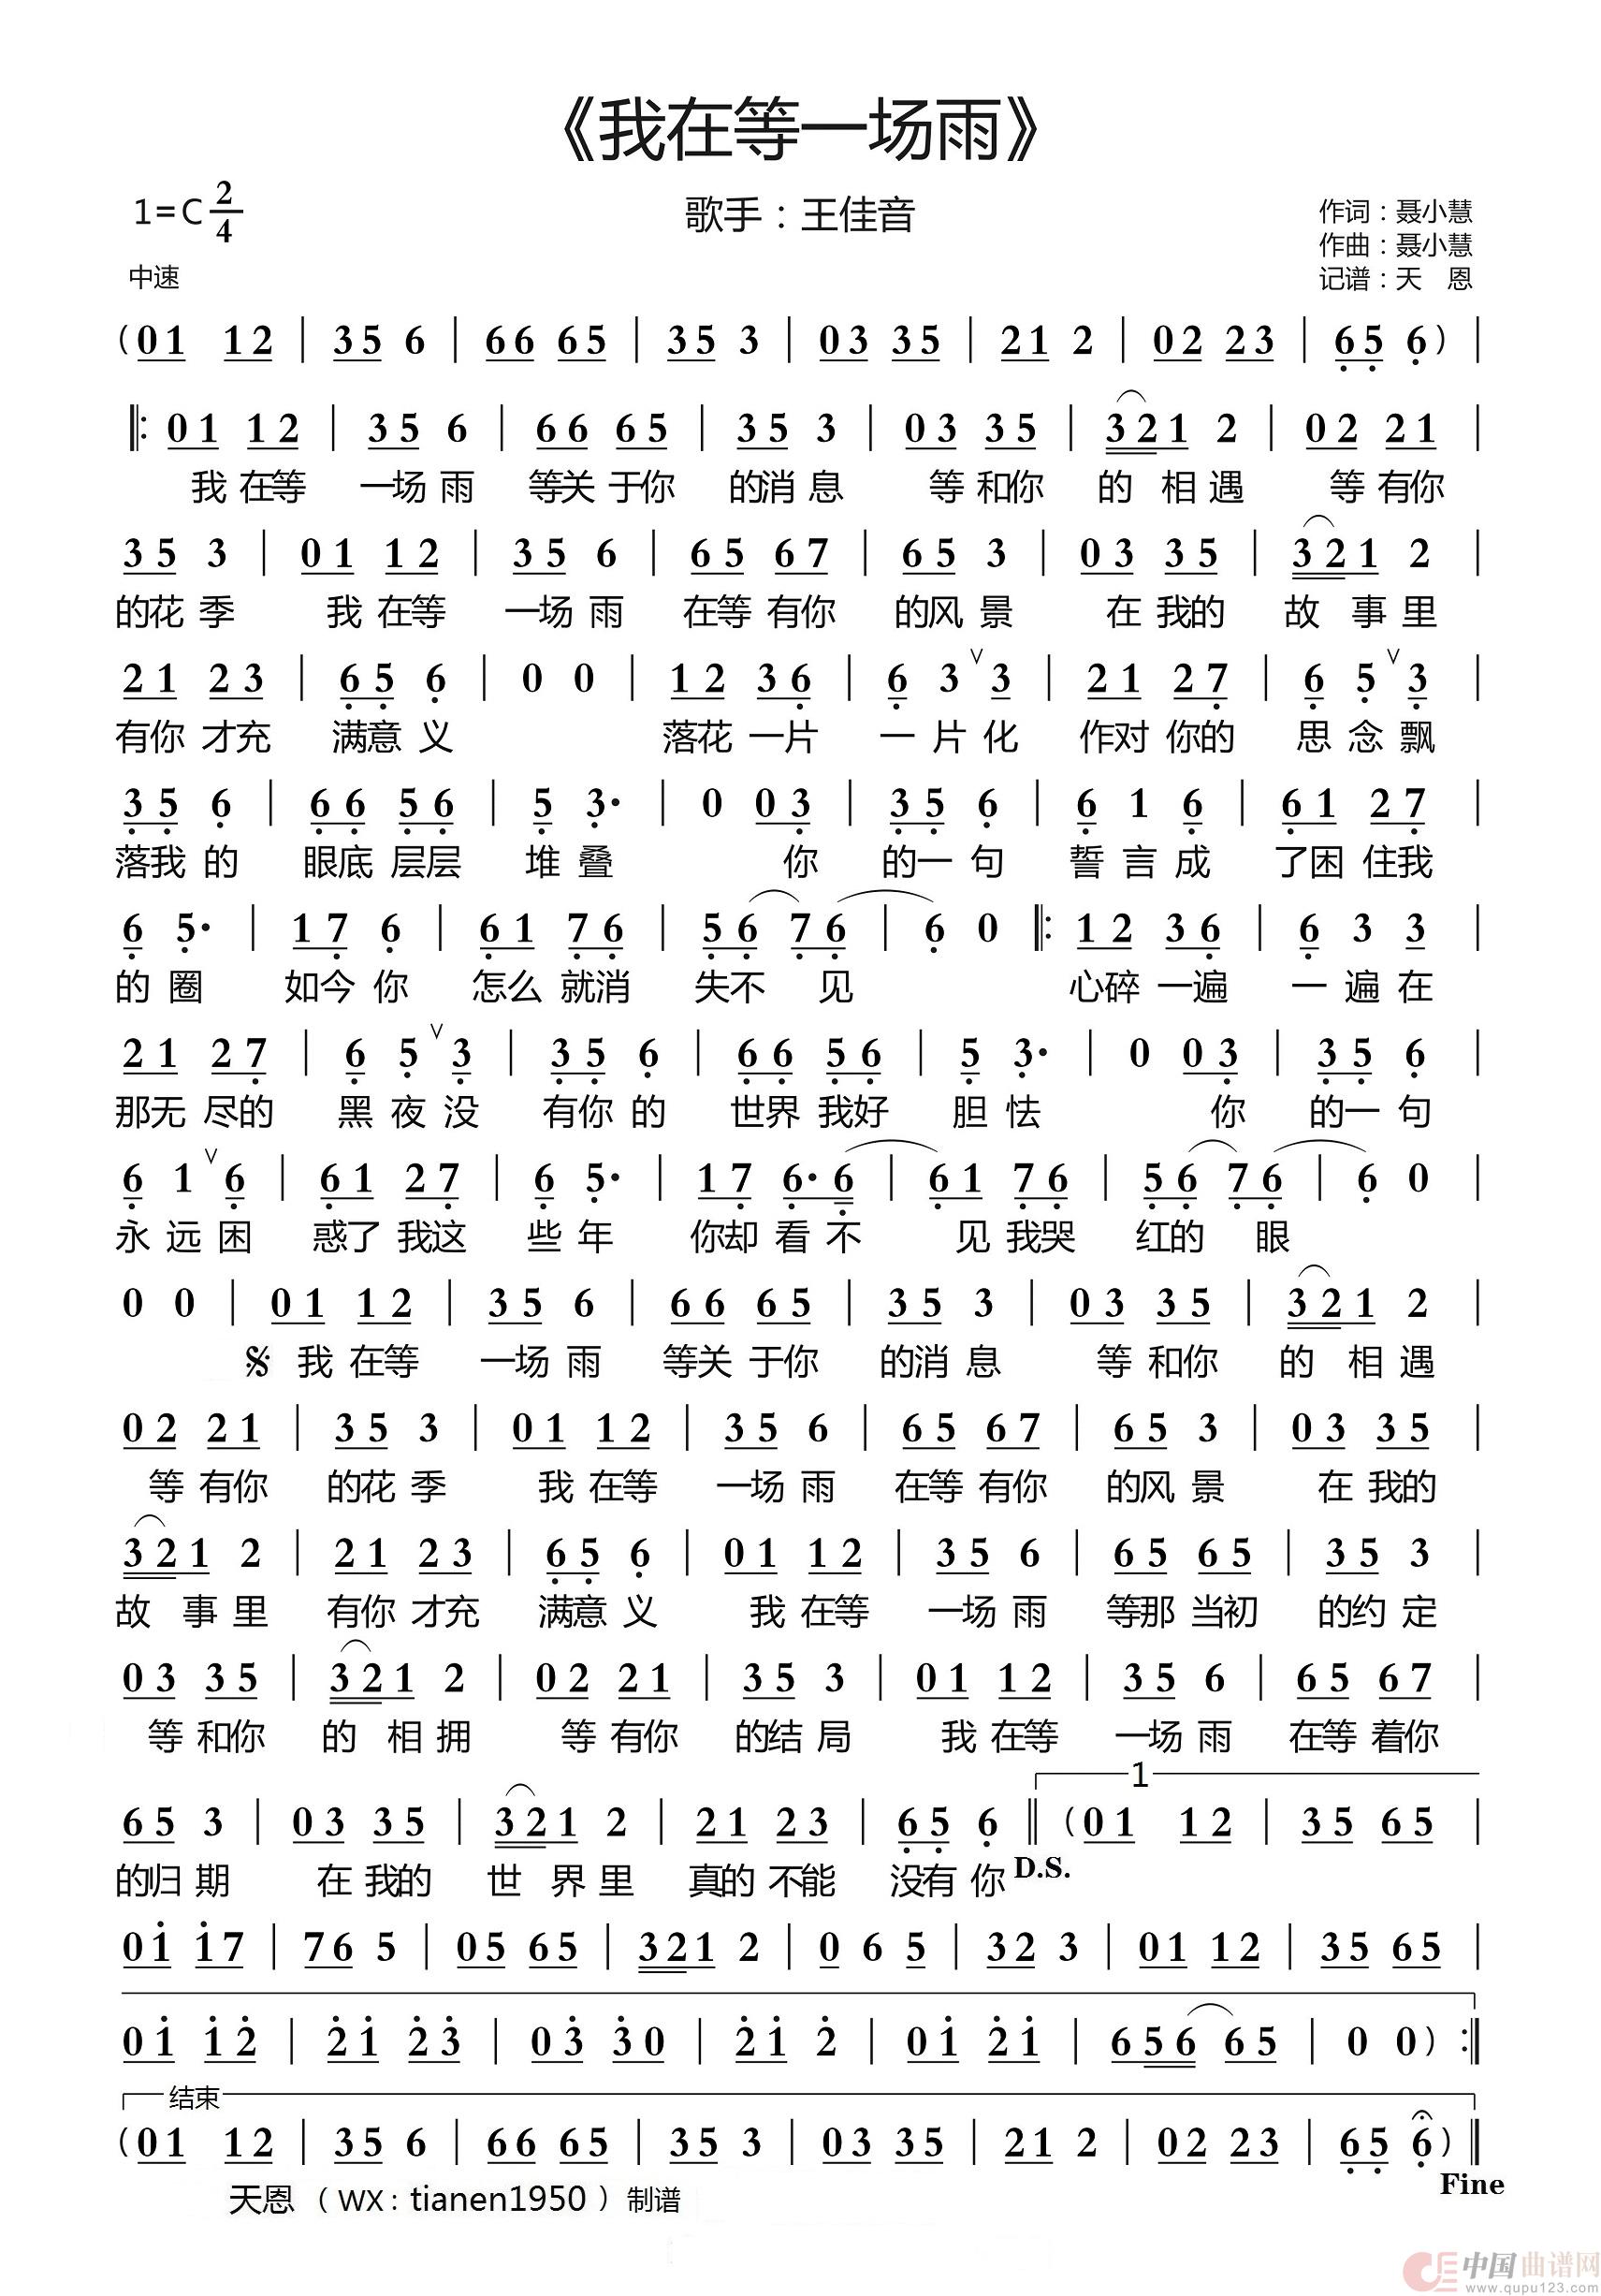 《我在等一场雨》
1=C 2/4
歌手：王佳音
作词：聂小慧
作曲：聂小慧
记谱：天 恩
中速
(01 12 | 35 6 | 66 65 | 35 3 | 03 35 | 21 2 | 02 23 | 6̣5̣ 6̣) |
‖: 01 12 | 35 6 | 66 65 | 35 3 | 03 35 | 321 2 | 02 21 |
我 在等 一场 雨 等关 于你 的消 息 等 和你 的 相 遇 等 有你
35 3 | 01 12 | 35 6 | 65 67 | 65 3 | 03 35 | 321 2 |
的花 季 我 在等 一场 雨 在等 有你 的风 景 在 我的 故 事 里
21 23 | 6̣5̣ 6̣ | 0 0 | 12 36̣ | 6̣ 3 ∨ 3 | 21 27̣ | 6̣ 5̣ ∨ 3̣ |
有你 才充 满意 义 落花 一片 一 片 化 作对 你的 思 念 飘
3̣5̣ 6̣ | 6̣6̣ 5̣6̣ | 5̣ 3̣· | 0 03̣ | 3̣5̣ 6̣ | 6̣ 1 6̣ | 6̣1 27̣ |
落我 的 眼底 层层 堆 叠 你 的一 句 誓 言 成 了困 住我
6̣ 5̣· | 17̣ 6̣ | 6̣1 7̣6̣ | 5̣6̣ 7̣6̣ | 6̣ 0 ‖: 12 36̣ | 6̣ 3 3 |
的 圈 如今 你 怎么 就消 失不 见 心碎 一遍 一 遍 在
21 27̣ | 6̣ 5̣ ∨ 3̣ | 3̣5̣ 6̣ | 6̣6̣ 5̣6̣ | 5̣ 3̣· | 0 03̣ | 3̣5̣ 6̣ |
那无 尽的 黑 夜 没 有你 的 世界 我好 胆 怯 你 的一 句
6̣ 1 ∨ 6̣ | 6̣1 27̣ | 6̣ 5̣· | 17̣ 6̣·6̣ | 6̣1 7̣6̣ | 5̣6̣ 7̣6̣ | 6̣ 0 |
永 远 困 惑了 我这 些 年 你却 看 不 见 我哭 红的 眼
0 0 | 01 12 | 35 6 | 66 65 | 35 3 | 03 35 | 321 2 |
𝄋 我 在等 一场 雨 等关 于你 的消 息 等 和你 的 相 遇
02 21 | 35 3 | 01 12 | 35 6 | 65 67 | 65 3 | 03 35 |
等 有你 的花 季 我 在等 一场 雨 在等 有你 的风 景 在 我的
321 2 | 21 23 | 6̣5̣ 6̣ | 01 12 | 35 6 | 65 65 | 35 3 |
故 事 里 有你 才充 满意 义 我 在等 一场 雨 等那 当初 的约 定
03 35 | 321 2 | 02 21 | 35 3 | 01 12 | 35 6 | 65 67 |
等 和你 的 相 拥 等 有你 的结 局 我 在等 一场 雨 在等 着你
1
65 3 | 03 35 | 321 2 | 21 23 | 6̣5̣ 6̣ ‖ (01 12 | 35 65 |
的归 期 在 我的 世 界 里 真的 不能 没有 你 D.S.
01̇ 1̇7 | 76 5 | 05 65 | 321 2 | 0 6 5 | 32 3 | 01 12 | 35 65 |
01̇ 1̇2̇ | 2̇1̇ 2̇3̇ | 03̇ 3̇0 | 2̇1̇ 2̇ | 01̇ 2̇1̇ | 656 65 | 0 0) :‖
结束
(01 12 | 35 6 | 66 65 | 35 3 | 03 35 | 21 2 | 02 23 | 6̣5̣ 6̣) ‖
Fine
天恩（WX：tianen1950）制谱
中国曲谱网
www.qupu123.com